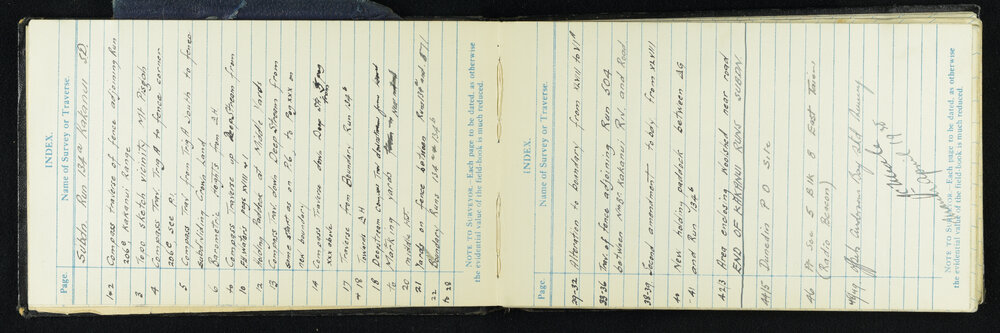 INDEX.
Page.
Name of Survey or Traverse.
Subdn. Run 134a Kakanui SD.
1+2 Compass traverse of fence adjoining Run
206e Kakanui Range
3 Topo sketch vicinity Mt Pisgah
4 Compass Trav. Trig A to fence corner
206e see P1.
5 Compass Trav from Trig A South to fence
subdividing Crown Land
6 Barometric heights from 2H
to Compass Traverse up Deep Stream from
10
12 Holding Paddock at Middle Yards
13 Compass trav. down Deep Stream from
same start as on P.6. to Peg xxx on
new boundary
14 Compass Traverse down Deep Str from
xxx above
17 Traverse from Boundary Run 134b
+18 round 2H
18
to Marking yards
20 Paddocks
21 Yards on fence between Runs 134a and 571
22 Boundary Runs 134a & 134b
to 28
NOTE TO SURVEYOR. Each page to be dated, as otherwise
the evidential value of the field-book is much reduced.
INDEX.
Page.
Name of Survey or Traverse.
29-32 Alteration to boundary from XLVII to VIA
33-36 Trav. of fence adjoining Run 504
between No 8: Kakanui Riv. and Road
38-39 Second amendment to bdy from XLVIII
40 New holding paddock between 2G
-41 and Run 134b
42/3 Area enclosing Homestead near road
END OF KAKANUI RUNS SUBDN
44/5 Dunedin P O Site
46 Pt Sec 5 Blk 8 East Taieri
(Radio Beacon)
NOTE TO SURVEYOR. Each page to be dated, as otherwise
the evidential value of the field-book is much reduced.